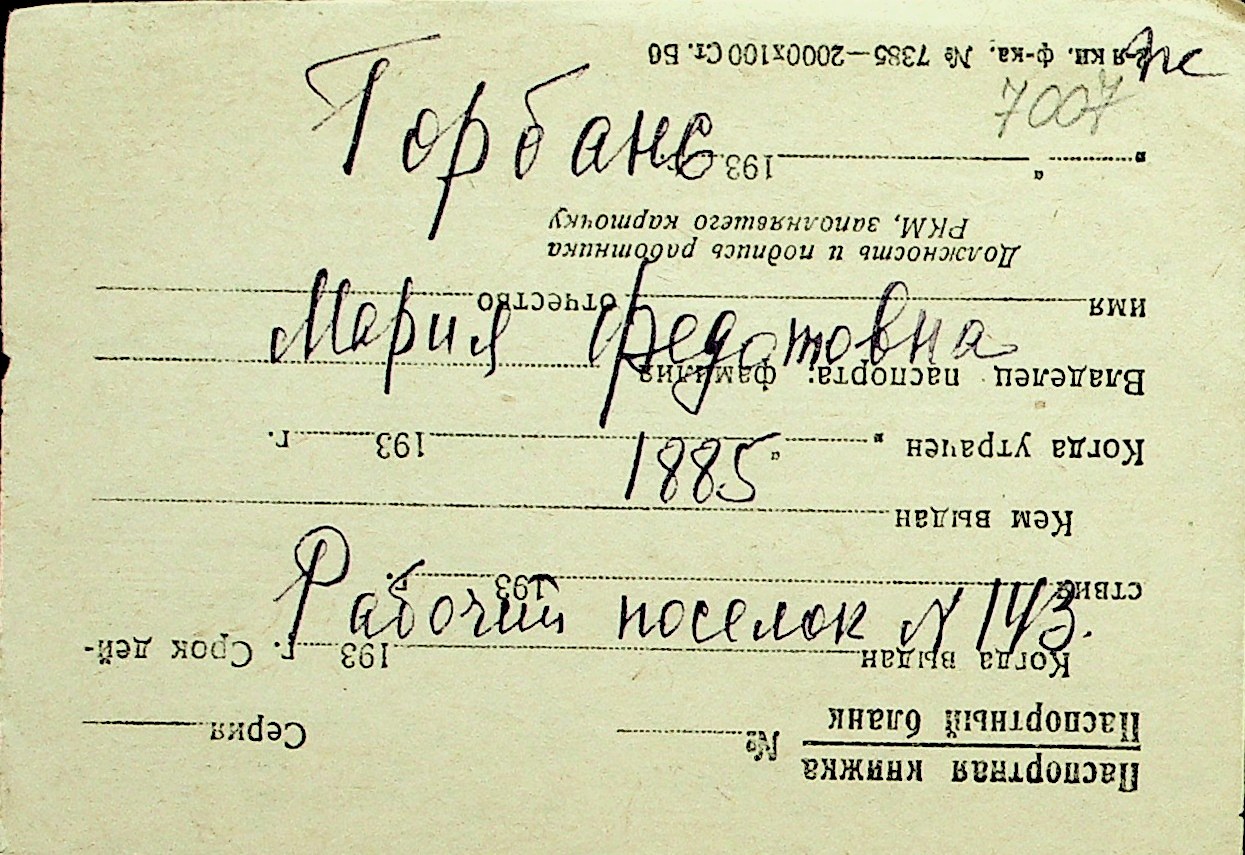 ж
7007
Горбань
Мария Федотовна
1885
Рабочий поселок N 143.
Паспортная книжка
Паспортный бланк
№ Серия
Когда выдан 193 г. Срок дей-
ствия 193 г.
Кем выдан
Когда утрачен „ “ 193 г.
Владелец паспорта: фамилия
имя отчество
Должность и подпись работника
РКМ, заполнявшего карточку
„ “ 193 г.
ф-ка. № 7385—2000х100 Ст. Б6